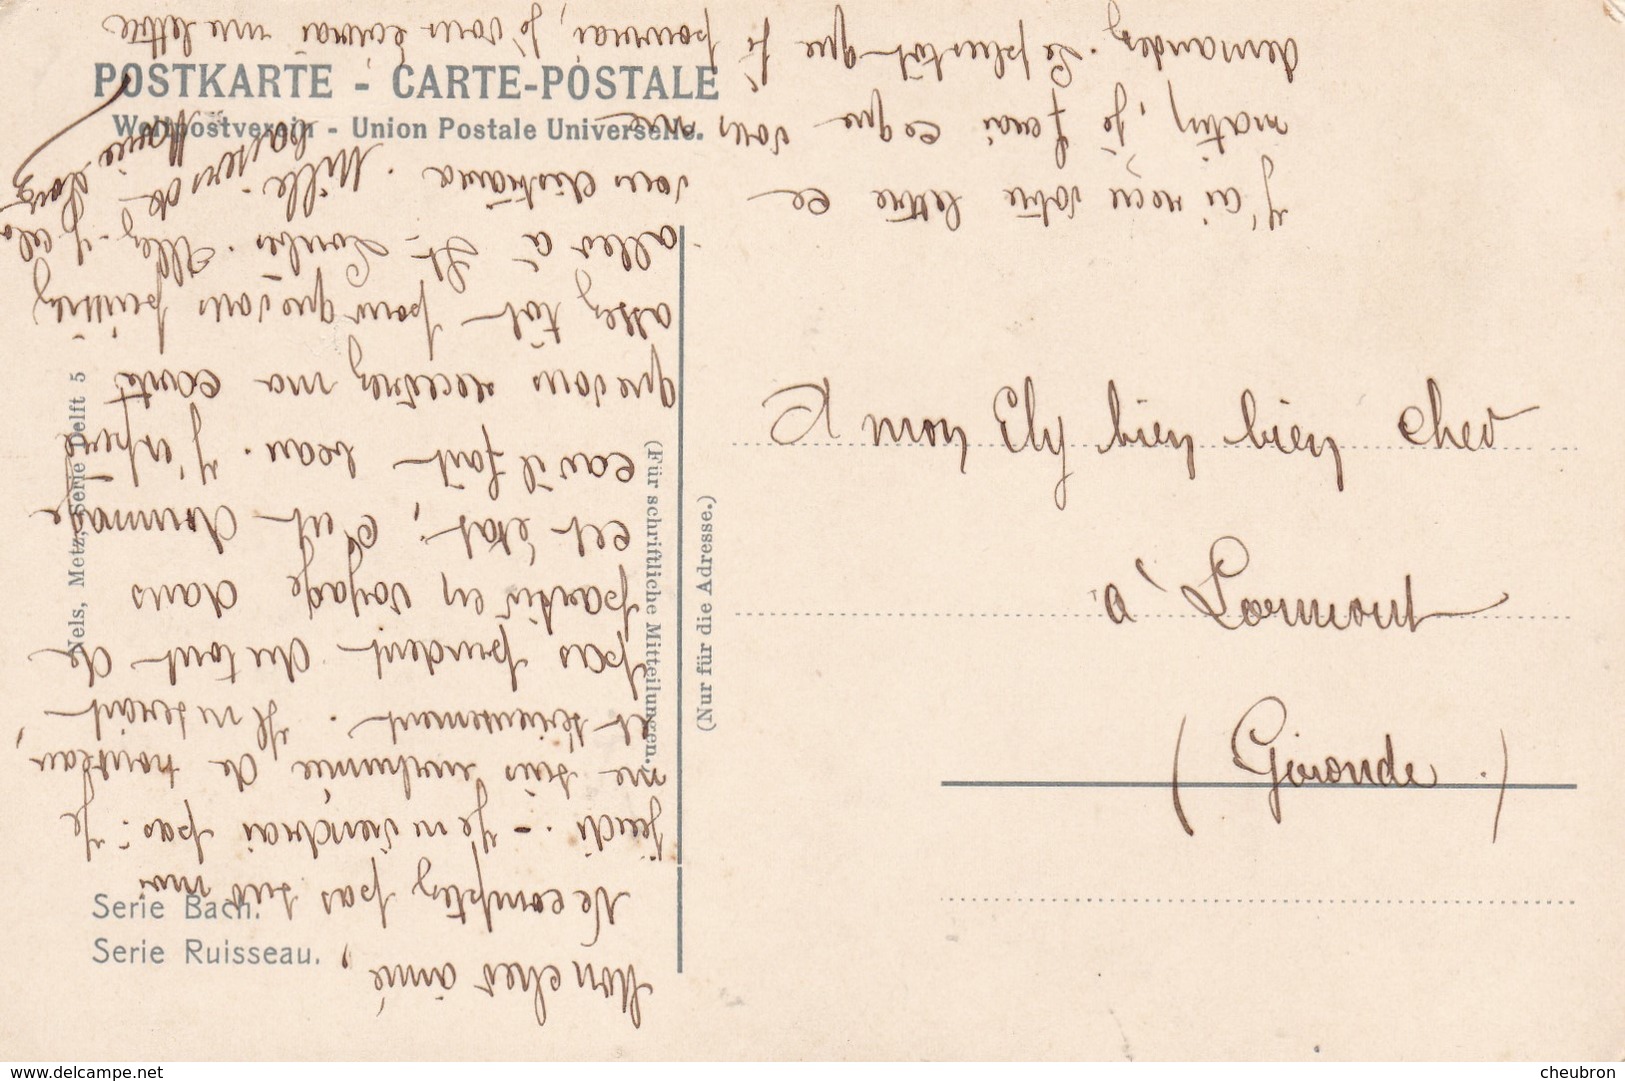 POSTKARTE - CARTE-POSTALE
Weltpostverein - Union Postale Universelle.
Nels, Metz, Serie Delft 5
(Für schriftliche Mitteilungen.)
(Nur für die Adresse.)
Serie Bach.
Serie Ruisseau.
A mon Ely bien bien cher
à Lormont
(Gironde.)
Mon cher aimé,
Ne comptez pas sur moi
jeudi. - Je ne viendrai pas: Je
me suis enrhumée, de nouveau,
et sérieusement. Il ne serait
pas prudent du tout de
partir en voyage dans
cet état; c'est dommage
car il fait beau. J'espère
que vous recevrez ma carte
assez tôt pour que vous puissiez
aller à St. Loubès. Allez-y cela
vous distraira. Mille
baisers de
Marie
J'ai reçu votre lettre ce
matin, je ferai ce que vous me
demandez. Le plus tôt que je
pourrai, je vous écrirai une lettre
delcampe.net
cheubron